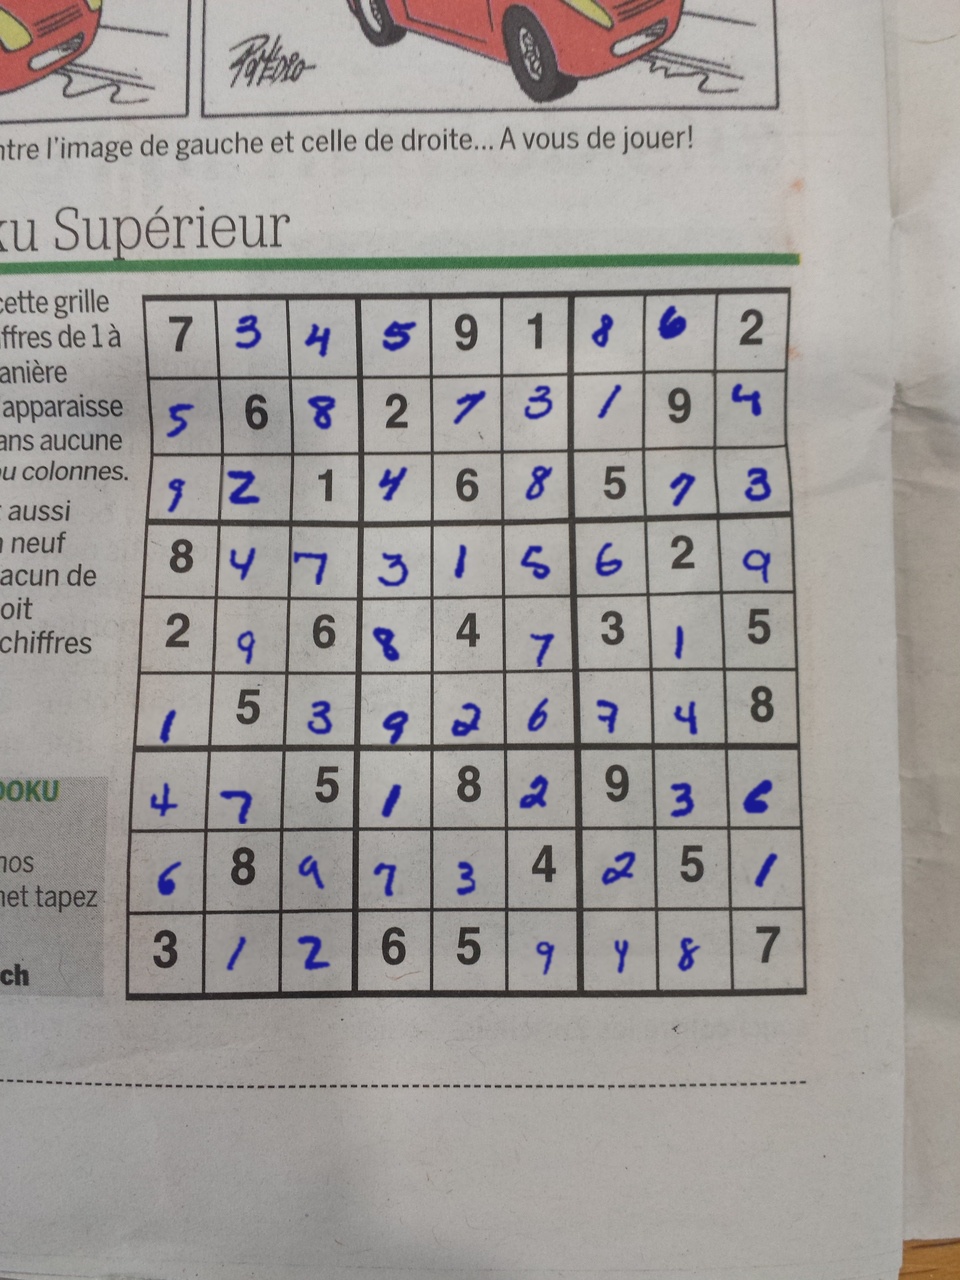 ntre l'image de gauche et celle de droite... A vous de jouer!
ku Supérieur
cette grille
ffres de 1 à
anière
apparaisse
ans aucune
ou colonnes.
aussi
n neuf
acun de
oit
chiffres
DOKU
nos
net tapez
ch
7 3 4 5 9 1 8 6 2
5 6 8 2 7 3 1 9 4
9 2 1 4 6 8 5 7 3
8 4 7 3 1 5 6 2 9
2 9 6 8 4 7 3 1 5
1 5 3 9 2 6 7 4 8
4 7 5 1 8 2 9 3 6
6 8 9 7 3 4 2 5 1
3 1 2 6 5 9 4 8 7